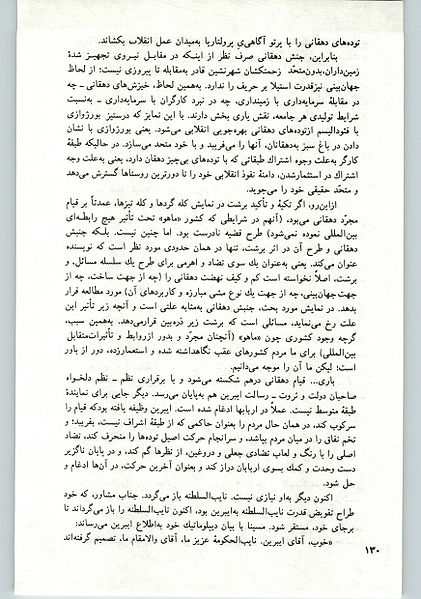 توده‌های دهقانی را با پرتو آگاهی پرولتاریا به‌میدان عمل انقلاب بکشاند.
بنابراین، جنش دهقانی صرف نظر از اینکه در مقابل نیروی تجهیز شدهٔ
زمین‌داران، بدون‌متحد زحمتکشان شهرنشین قادر به‌مقابله تا پیروزی نیست؛ از لحاظ
جهان‌بینی نیزقدرت استیلا بر حریف را ندارد. به‌همین لحاظ، خیزش‌های دهقانی ـ چه
در مقابلهٔ سرمایه‌داری با زمینداری، چه در نبرد کارگران با سرمایه‌داری ـ به‌نسبت
شرایط تولیدی هر جامعه، نقش یاری بخش دارند. با این تمایز که درستیز بورژوازی
با فئودالیسم ازتوده‌های دهقانی بهره‌جویی انقلابی می‌شود. یعنی بورژوازی با نشان
دادن در باغ سبز به‌دهقانان، آنها را می‌فریبد و با خود متحد می‌سازد. در حالیکه طبقهٔ
کارگر به‌علت وجوه اشتراك طبقاتی که با توده‌های بی‌چیز دهقان دارد، یعنی به‌علت وجه
اشتراك در استثمارشدن، دامنهٔ نفوذ انقلابی خود را تا دورترین روستاها گسترش می‌دهد
و متحد حقیقی خود را می‌جوید.
ازاین‌رو، اگر تکیهٔ و تأکید برشت در نمایش کله گردها و کله تیزها، عمدتاً بر قیام
مجرّد دهقانی می‌بود، (آنهم در شرایطی که کشور «ماهو» تحت تأثیر هیچ رابطه‌ای
بین‌المللی نموده نمی‌شود) طرح قضیه نادرست بود. اما چنین نیست. بلکه جنبش
دهقانی و طرح آن در اثر برشت، تنها در همان حدودی مورد نظر است که نویسنده
عنوان می‌کند. یعنی به‌عنوان یك سوی تضاد و اهرمی برای طرح یك سلسله مسائل، و
برشت، اصلاً نخواسته است کم و کیف نهضت دهقانی را (چه از جهت ساخت، چه از
جهت جهان‌بینی، چه از جهت یك نوع مشی مبارزه و کاربردهای آن) مورد مطالعه قرار
بدهد. در نمایش مورد بحث، جنبش دهقانی به‌مثابه علتی است و آنچه زیر تأثیر این
علت رخ می‌نماید، مسائلی است که برشت زیر ذره‌بین قرارمی‌دهد. به‌همین سبب،
گرچه وجود کشوری چون «ماهو» (آنچنان مجرّد و بدور ازروابط و تأثیرات‌متقابل
بین‌المللی) برای ما مردم کشورهای عقب نگاهداشته شده و استعمارزده، دور از باور
است؛ لیکن ما آن را موجه می‌دانیم.
باری... قیام دهقانی درهم شکسته می‌شود و با برقراری نظم ـ نظم دلخواه
صاحبان دولت و ثروت ـ رسالت ایبرین هم به‌پایان می‌رسد. دیگر جایی برای نمایندهٔ
طبقهٔ متوسط نیست. عملاً در اربابها ادغام شده است. ایبرین وظیفه یافته بودکه قیام را
سرکوب کند، در همان حال مردم را بعنوان حاکمی که از طبقهٔ اشراف نیست، بفریبد؛ و
تخم نفاق را در میان مردم بپاشد، و سرانجام حرکت اصیل توده‌ها را منحرف کند، تضاد
اصلی را با رنگ و لعاب تضادی جعلی و دروغین، از نظرها گم کند، و در پایان ناگزیر
دست وحدت و کمك بسوی اربابان دراز کند و بعنوان آخرین حرکت، در آن‌ها ادغام و
حل شود.
اکنون دیگر به‌او نیازی نیست. نایب‌السلطنه باز می‌گردد. جناب مشاور، که خود
طراح تفویض قدرت نایب‌السلطنه به‌ایبرین بود، اکنون نایب‌السلطنه را باز می‌گرداند تا
برجای خود، مستقر شود. مسینا با بیان دیپلوماتیك خود به‌اطلاع ایبرین می‌رساند:
«خوب، آقای ایبرین. نایب‌الحکومهٔ عزیز ما، آقای والامقام ما، تصمیم گرفته‌اند
۱۳۰